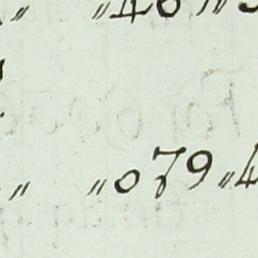 „ „46„
„ „079„4